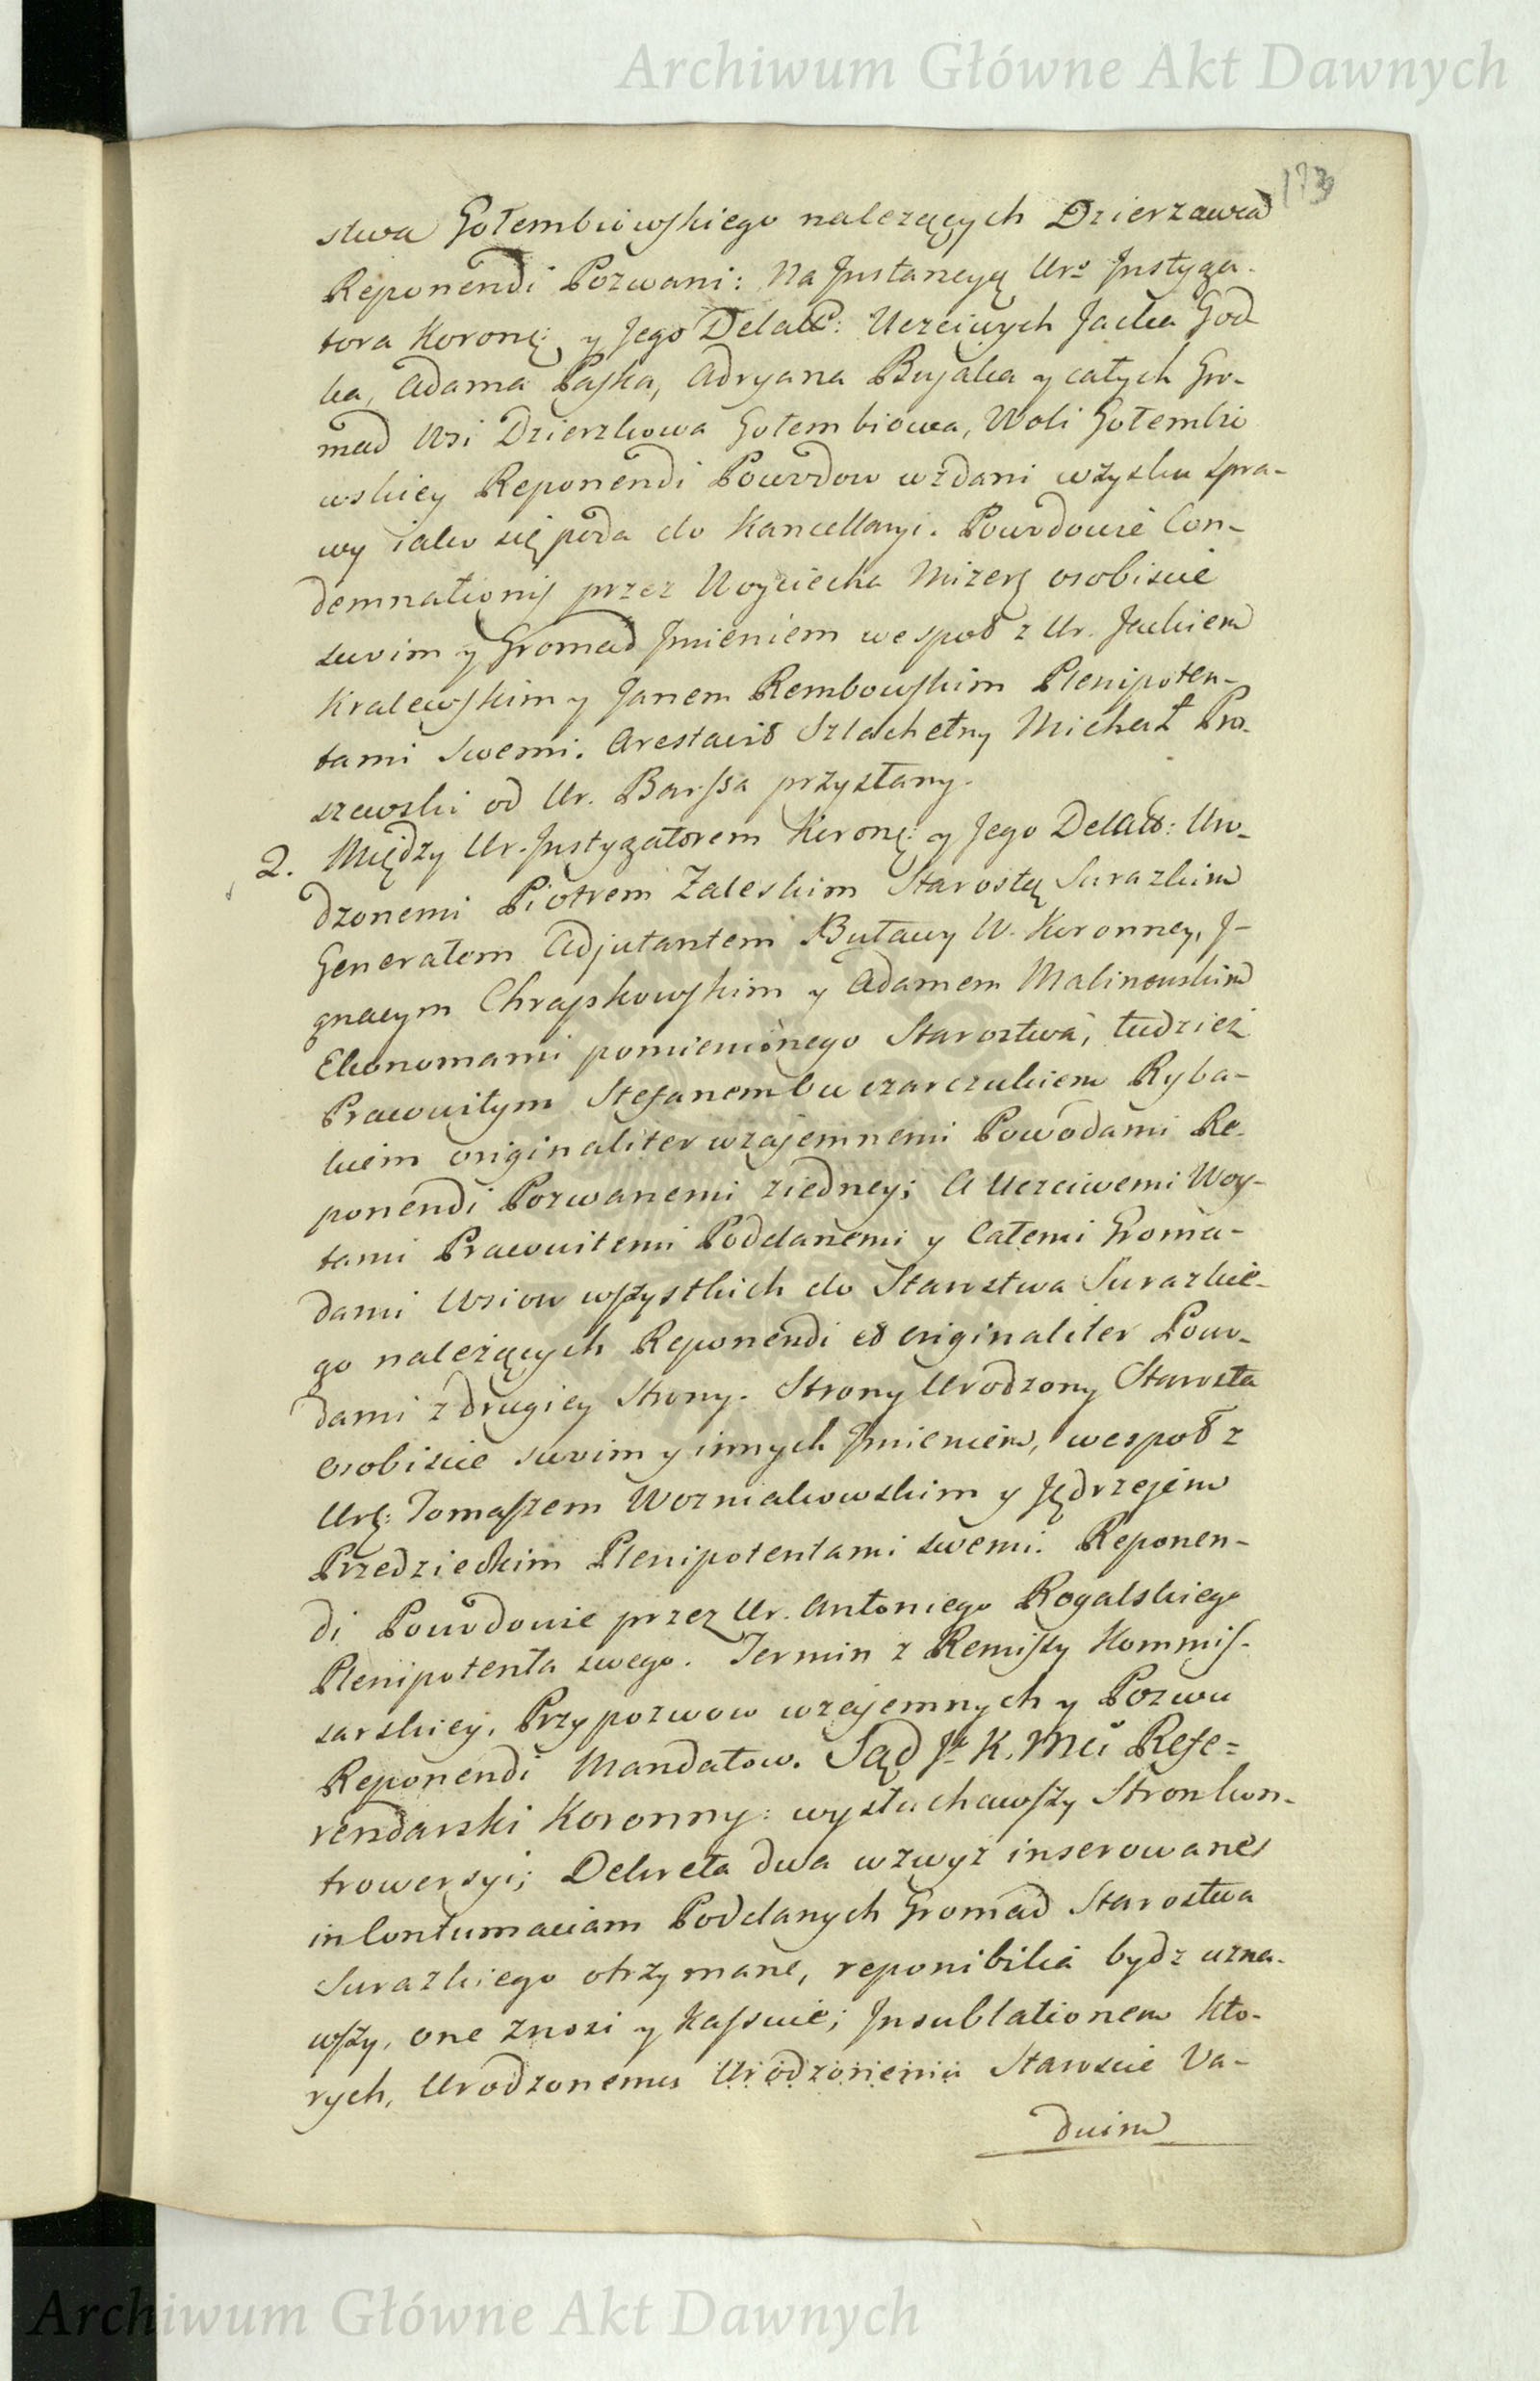 Archiwum Główne Akt Dawnych
173
stwa Gołembiowskiego nalezących Dzierzawca
Reponendi Pozwani: Na Jnstancyą Uro Jnstyga-
tora Koronę: y Jego Delat: Uczciwych Jacka God
ka, Adama Paska, Adryana Bujaka y całych Gro-
mad Wsi Dzierzkowa Gołembiowa, Woli Gołembio
wskiey Reponendi Powodow wzdani wzysku spra-
wy iako się poda do Kancellaryi. Powodowie Con-
demnationis przez Woyciecha Mizerę osobiscie
swoim y Gromad Jmieniem wespoł z Ur. Jackiem
Kralewskim y Janem Rembowskim Plenipoten-
tami swemi. Arestował Szlachetny Michał Pro-
szewski od Ur. Barssa przysłany.
2. Między Ur. Jnstygatorem Koronę: y Jego Delat: Uro-
dzonemi Piotrem Zaleskim Starostą Surazkim
Generałem Adjutantem Buławy W. Koronney, J-
gnacym Chrapkowskim y Adamem Malinowskim
Ekonomami pomienionego Starostwa, tudziez
Prawowitym Stefanem Ryba-
kiem originaliter wzajemnemi Powodami Re-
ponendi Pozwanemi ziedney; A Uczciwemi Woy-
tami Prawowitemi Poddanemi y Całemi Groma-
dami Wsiow wszystkich do Starostwa Surazkie-
go należących Reponendi et originaliter Powo-
dami z drugiey Strony. Strony Urodzony Starosta
osobiscie swoim y innych Jmieniem, wespoł z
Urę: Tomaszem Wozniakowskim y Jędrzejem
Przedzieckim Plenipotentami swemi. Reponen-
di Powodowie przez Ur. Antoniego Rogalskiego
Plenipotenta swego. Termin z Remissy Kommis-
sarskiey, Przypozwow wzajemnych y Pozwu
Reponendi Mandatow. Sąd Jo K. Mci Refe=
rendarski Koronny: wysłuchawszy Stron kon-
trowersyi; Dekreta dwa wzwyz inserowane
in Contumaciam Poddanych Gromad Starostwa
Surazkiego otrzymane, reponibilia bydz uzna-
wszy, one znosi y kassuie; Jnsublationem kto-
rych, Urodzonemu Urodzonemu Staroscie Va-
duim
Archiwum Główne Akt Dawnych